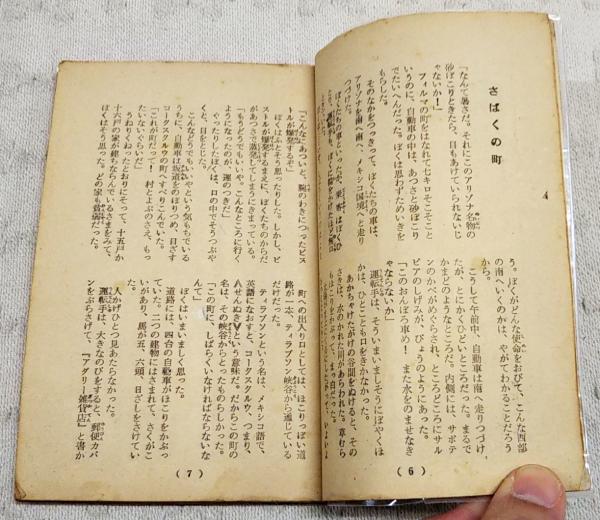 さばくの町
「なんて暑さだ。それにこのアリゾナ名物の
砂ぼこりときたら、目もあけていられないじ
ゃないか！」
フィルマの町をはなれて七キロそこそこと
いうのに、自動車の中は、あつさと砂ぼこり
でたいへんだった。ぼくは思わずためいきを
もらした。
そのなかをつっきって、ぼくたちの車は、
アリゾナを南へ南へ、メキシコ国境へと走り
つづけた。
う。ぼくがどんな使命をおびて、こんな西部
の南へいくのかは、やがてわかることだろう
から。
こうして午前中、自動車は南へ走りつづけ
たが、とにかくひどいところだった。まるで
かまどのようなところだ。内側には、サボテ
ンのかべがめぐらされ、ところどころにサル
ビアのしげみが、びょうのようにあった。
「このおんぼろ車め！　また水をのませなき
ゃならないか」
運転手は、そういまいましそうにぼやくほ
かは、ひとことも口をきかなかった。
あかちゃけたがけの谷間をぬけると、その
さきは、水のかれた川があらわれた。草むら
もほこりをかぶって、まっ白だった。
(6)
「こんなにあついと、腕のわきにつったピス
トルが爆発するぞ」
ぼくはふとそう思ったりした。しかし、ピ
ストルが爆発するまえに、ぼくたちのからだ
があつさで蒸発してしまうにきまっている。
「もうどうでもいいや。こんなところに行く
ようになったのが、運のつきだ」
やったりしたぼくは、口の中でそうつぶや
くと、目をとじた。
こんなどうでもいいやという気もちでいる
うちに、自動車は坂道をのぼりつめ、目ざす
コークスクルウの町へすべりこんでいた。
「これが町だって！　村とよぶのさえ、もっ
たいないぐらいだ」
うねりくねったとおりにそって、十五戸か
十六戸の家が建ちならんでいるさまをみて、
ぼくはそう思った。どの家も貧弱だった。
町への出入り口としては、ほこりっぽい道
路が一本、ティラブソン峡谷から通じている
だけだった。
ティラブソンという名は、メキシコ語で、
英語になおすと、コークスクルウ、つまり、
＜せんぬき＞という意味だ。だからこの町の
名は、その峡谷からとったものらしかった。
「この町に、しばらくいなければならないな
んて」
ぼくは、いまいましく思った。
道路には、四台の自動車がほこりをかぶっ
ていた。二つの建物にはさまれて、さくがこ
いがあり、馬が五、六頭、日ざしをさけてい
た。
人かげひとつ見あたらなかった。
運転手は、大きなのびをすると、郵便カバ
ンをぶらさげて、『アグリー雑貨店』と書か
(7)